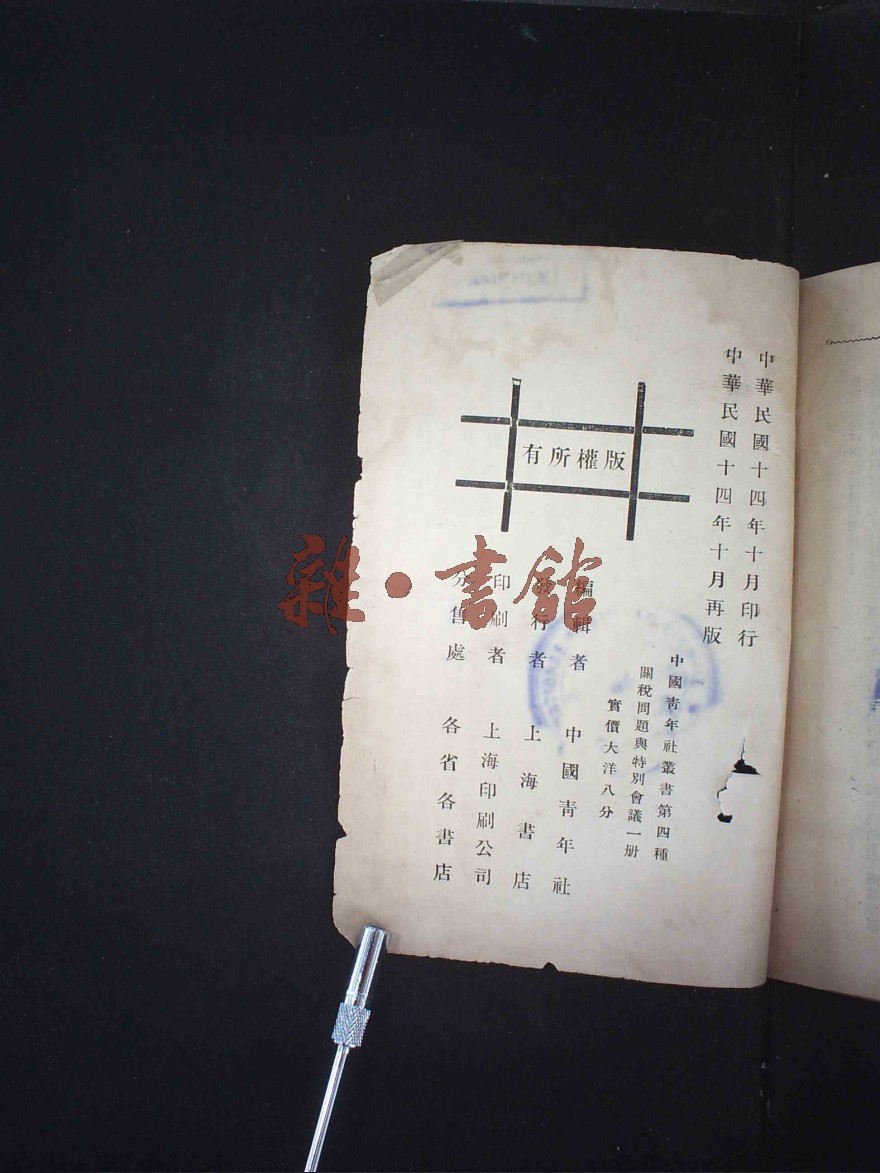 中華民國十四年十月印行
中華民國十四年十月再版
中國靑年社叢書第四種
關稅問題與特別會議一册
實價大洋八分
版權所有
編輯者　中國靑年社
發行者　上海書店
印刷者　上海印刷公司
分售處　各省各書店
雜・書館